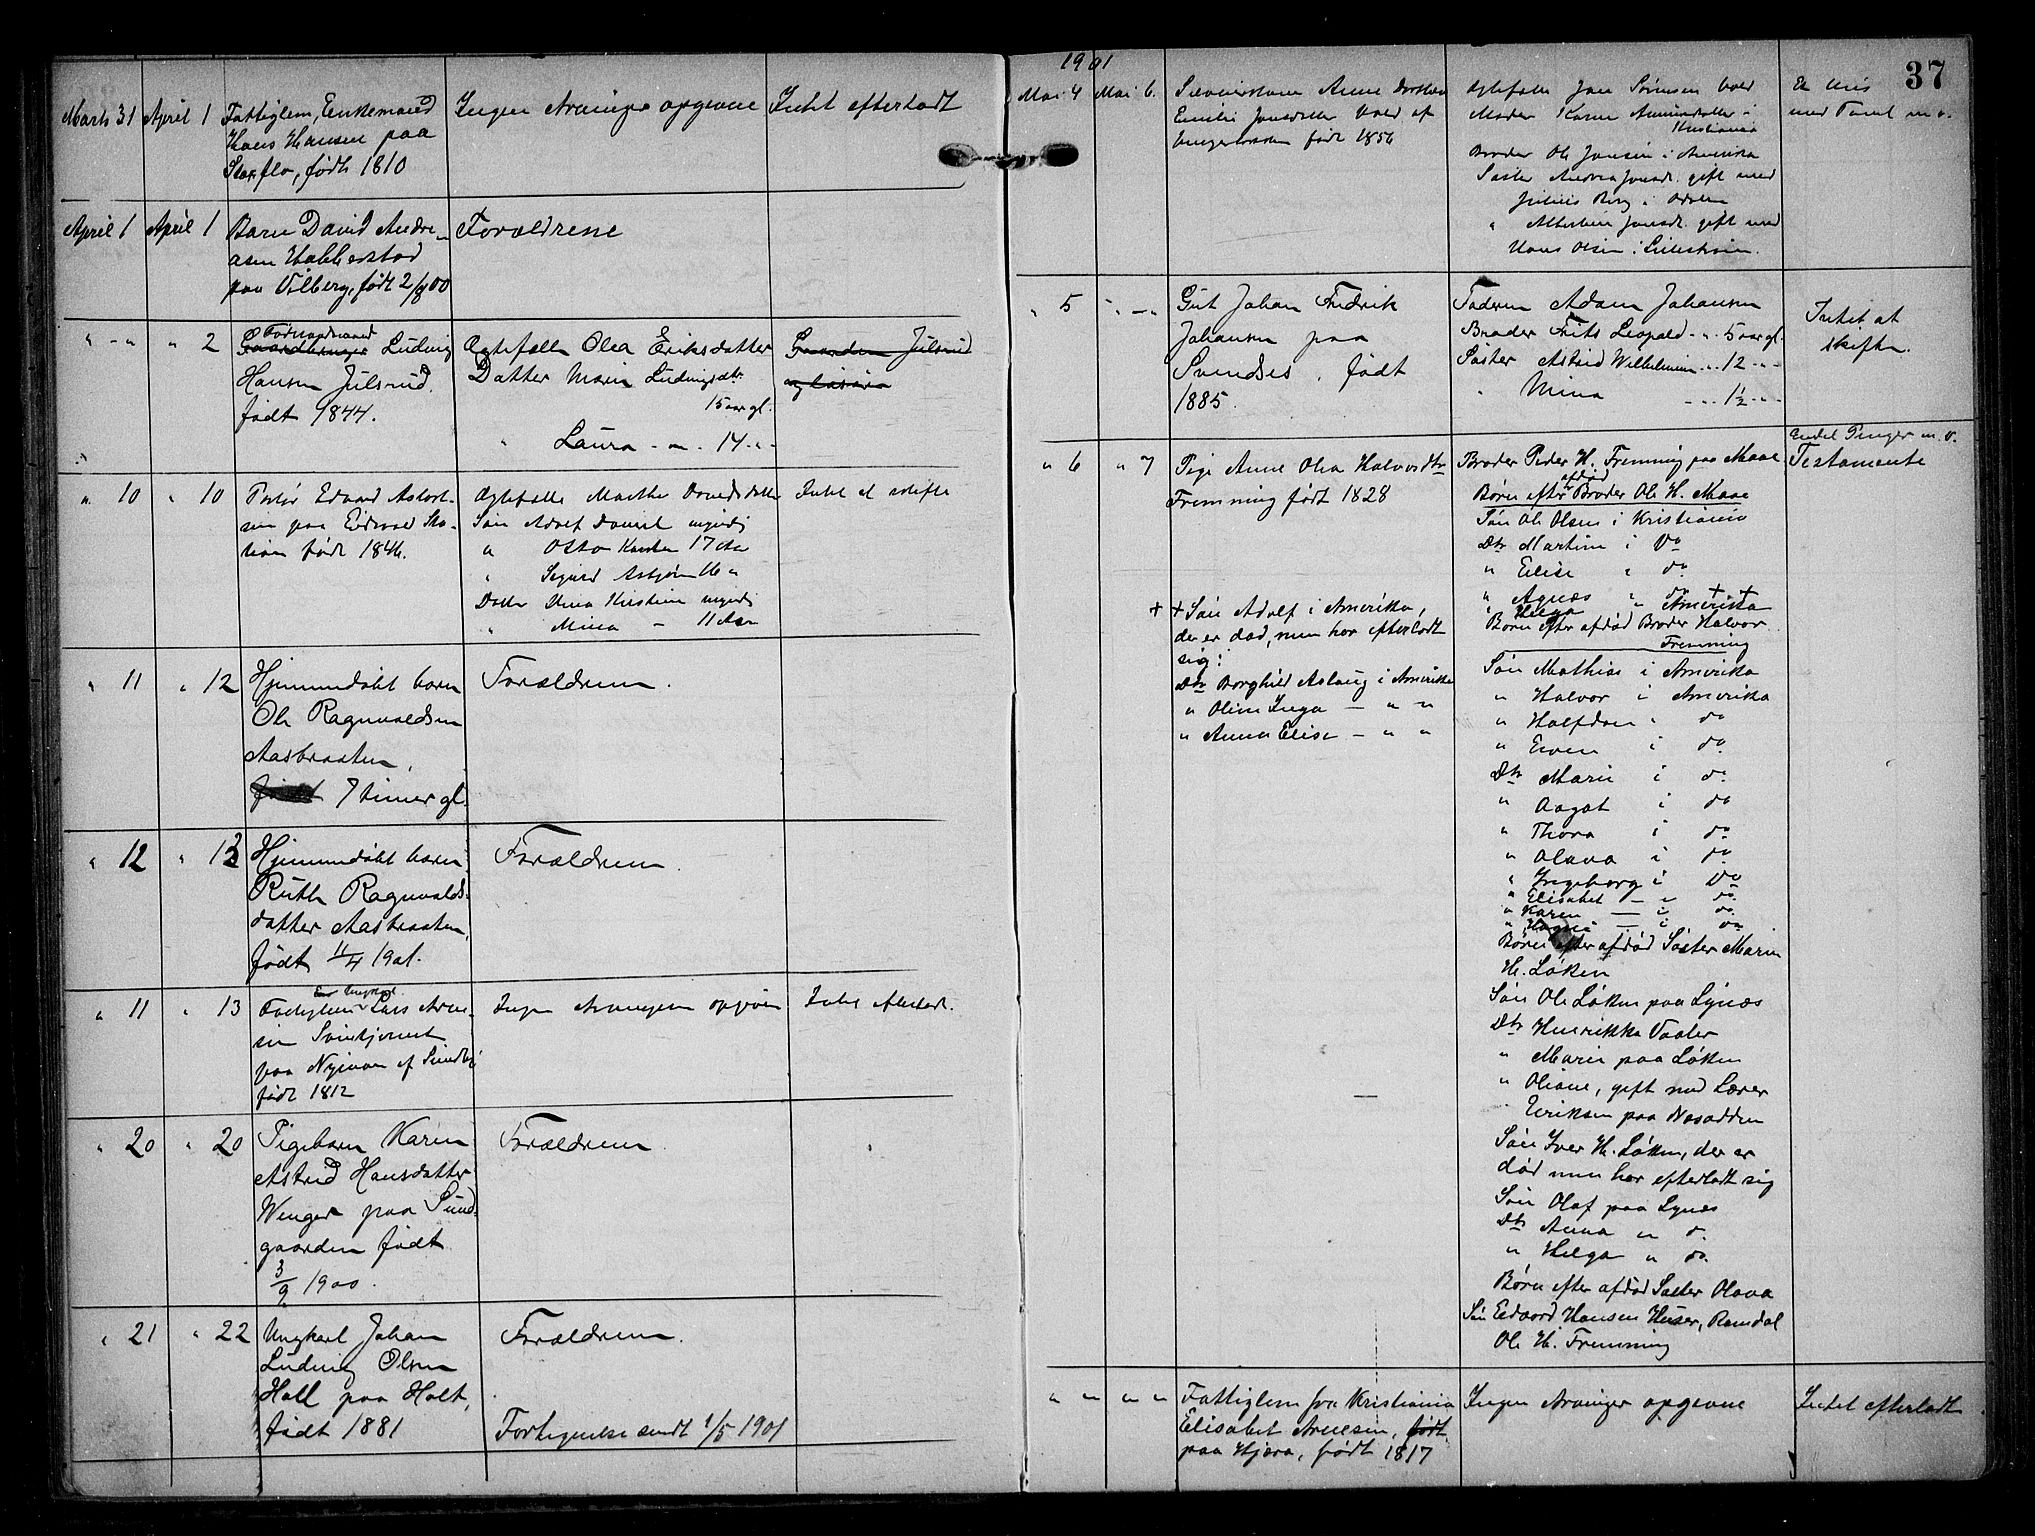 Marts 31 April 1 Fattiglem, Enkemand Ingen Arvinge opgivne Intet efterladt
Hans Hansen paa
født 1810
April 1 April 1 Barn David Andre- Forældrene
asen Habberstad
paa Vilberg, født 2/8 00
" - " " 2 Forhenværende
Gaardbruger Ludvig Ægtefælle Olea Eriksdatter Gaarden Julsrud
Hansen Julsrud. Datter Marie Ludvigsdtr. og løsøre
født 1844. 15 aar gl.
" Laura - " - 14 - " -
" 10 " 10 Edvard Ægtefælle Marthe Intet at skifte
paa Eidsvold Sta- Søn Adolf myndig
tion født 1846. " Otto Karsten 17 Aar
" Sigurd Asbjørn 16 "
Datter Kristine myndig
" Mina - 11 Aar
" 11 " 12 Hjemmedøbt barn Forældrene.
Ole Ragnvaldsen
Aasbraaten,
født 7 timer gl.
" 12 " 13 Hjemmedøbt barn Forældrene.
Ruth Ragnvalds-
datter Aasbraaten,
født 11/4 1901.
" 11 " 13 Fattiglem Ungkarl Lars Arne- Ingen Arvinger opgivne Intet efterladt.
sen
paa af
født 1812
" 20 " 20 Pigebarn Karen Forældrene
Astrid Hansdatter
Wenger paa Sund-
gaarden født
3/9 1900.
" 21 " 22 Ungkarl Johan Forældrene.
Ludvig Olsen
Holt paa Holt,
født 1881 Fortegnelse sendt 1/5 1901
37
1901
Mai 4 Mai 6. Anne Dorthea Ægtefælle Jon Sørensen Et Hus
Emilie Jonsdatter af Moder Karen i med m. v.
født 1856 Kristiania
Broder Ole Jonsen i Amerika
Søster Andrea Jonsd. gift med
Julius Berg i
" Jonsd. gift med
Hans Olsen i Lillestrøm.
" 5 " - " Gut Johan Fredrik Faderen Adam Johansen Intet at
Johansen paa Broder Frits Leopold - " - 5 aar gl. skifte.
født Søster Astrid Wilhelmine - " - 12 - " -
1885. " Mina - " - 1½ - " -
Endel Penger m. v.
" 6 " 7 Pige Anne Olea Halvorsdtr Broder Peder H. Fremming paa Maae Testamente
Fremming født 1828 Børn efter afdød Broder Ole H. Maae
Søn Ole Olsen i Kristiania
Dtr Martine i Do
" Elise " do
" Agnes " do ++
" Helga " Amerika
++ Søn Adolf i Amerika, Børn efter afdød Broder Halvor
der er død, men har efterladt Fremming
sig: Søn Mathias i Amerika
Dtr Borghild Aslaug i Amerika " Halvor i Amerika
" Oline Inga - " " " Halfdan " do
" Anna Elise - " " " Even i do
Dtr Marie i do
" Aagot i do
" Thora i do
" Olava i do
" Ingeborg i Do
" Elisabet - " do
" Karen - i do
" - i do
Børn efter afdød Søster Maren
H. Løken
Søn Ole Løken paa Lynæs
Dtr Henrikka Vaaler
" Marie paa Løken
" Oliane, gift med Lærer
Eriksen paa Nesodden
Søn Iver H. Løken, der er
død men har efterladt sig
Søn Olaf paa Lynes
Dtr Anna " d.
" Helga " do.
Børn efter afdød Søster Olava
Søn Edvard Hansen Huser, Romdal
Ole H. Fremming
" " " " Fattiglem fra Kristiania Ingen Arvinger opgivne Intet efterladt.
Elisabet Arnesen, født
paa Hjera, født 1817